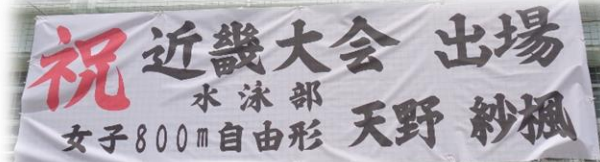 祝 近畿大会 出場
水泳部
女子800m自由形 天野 紗楓